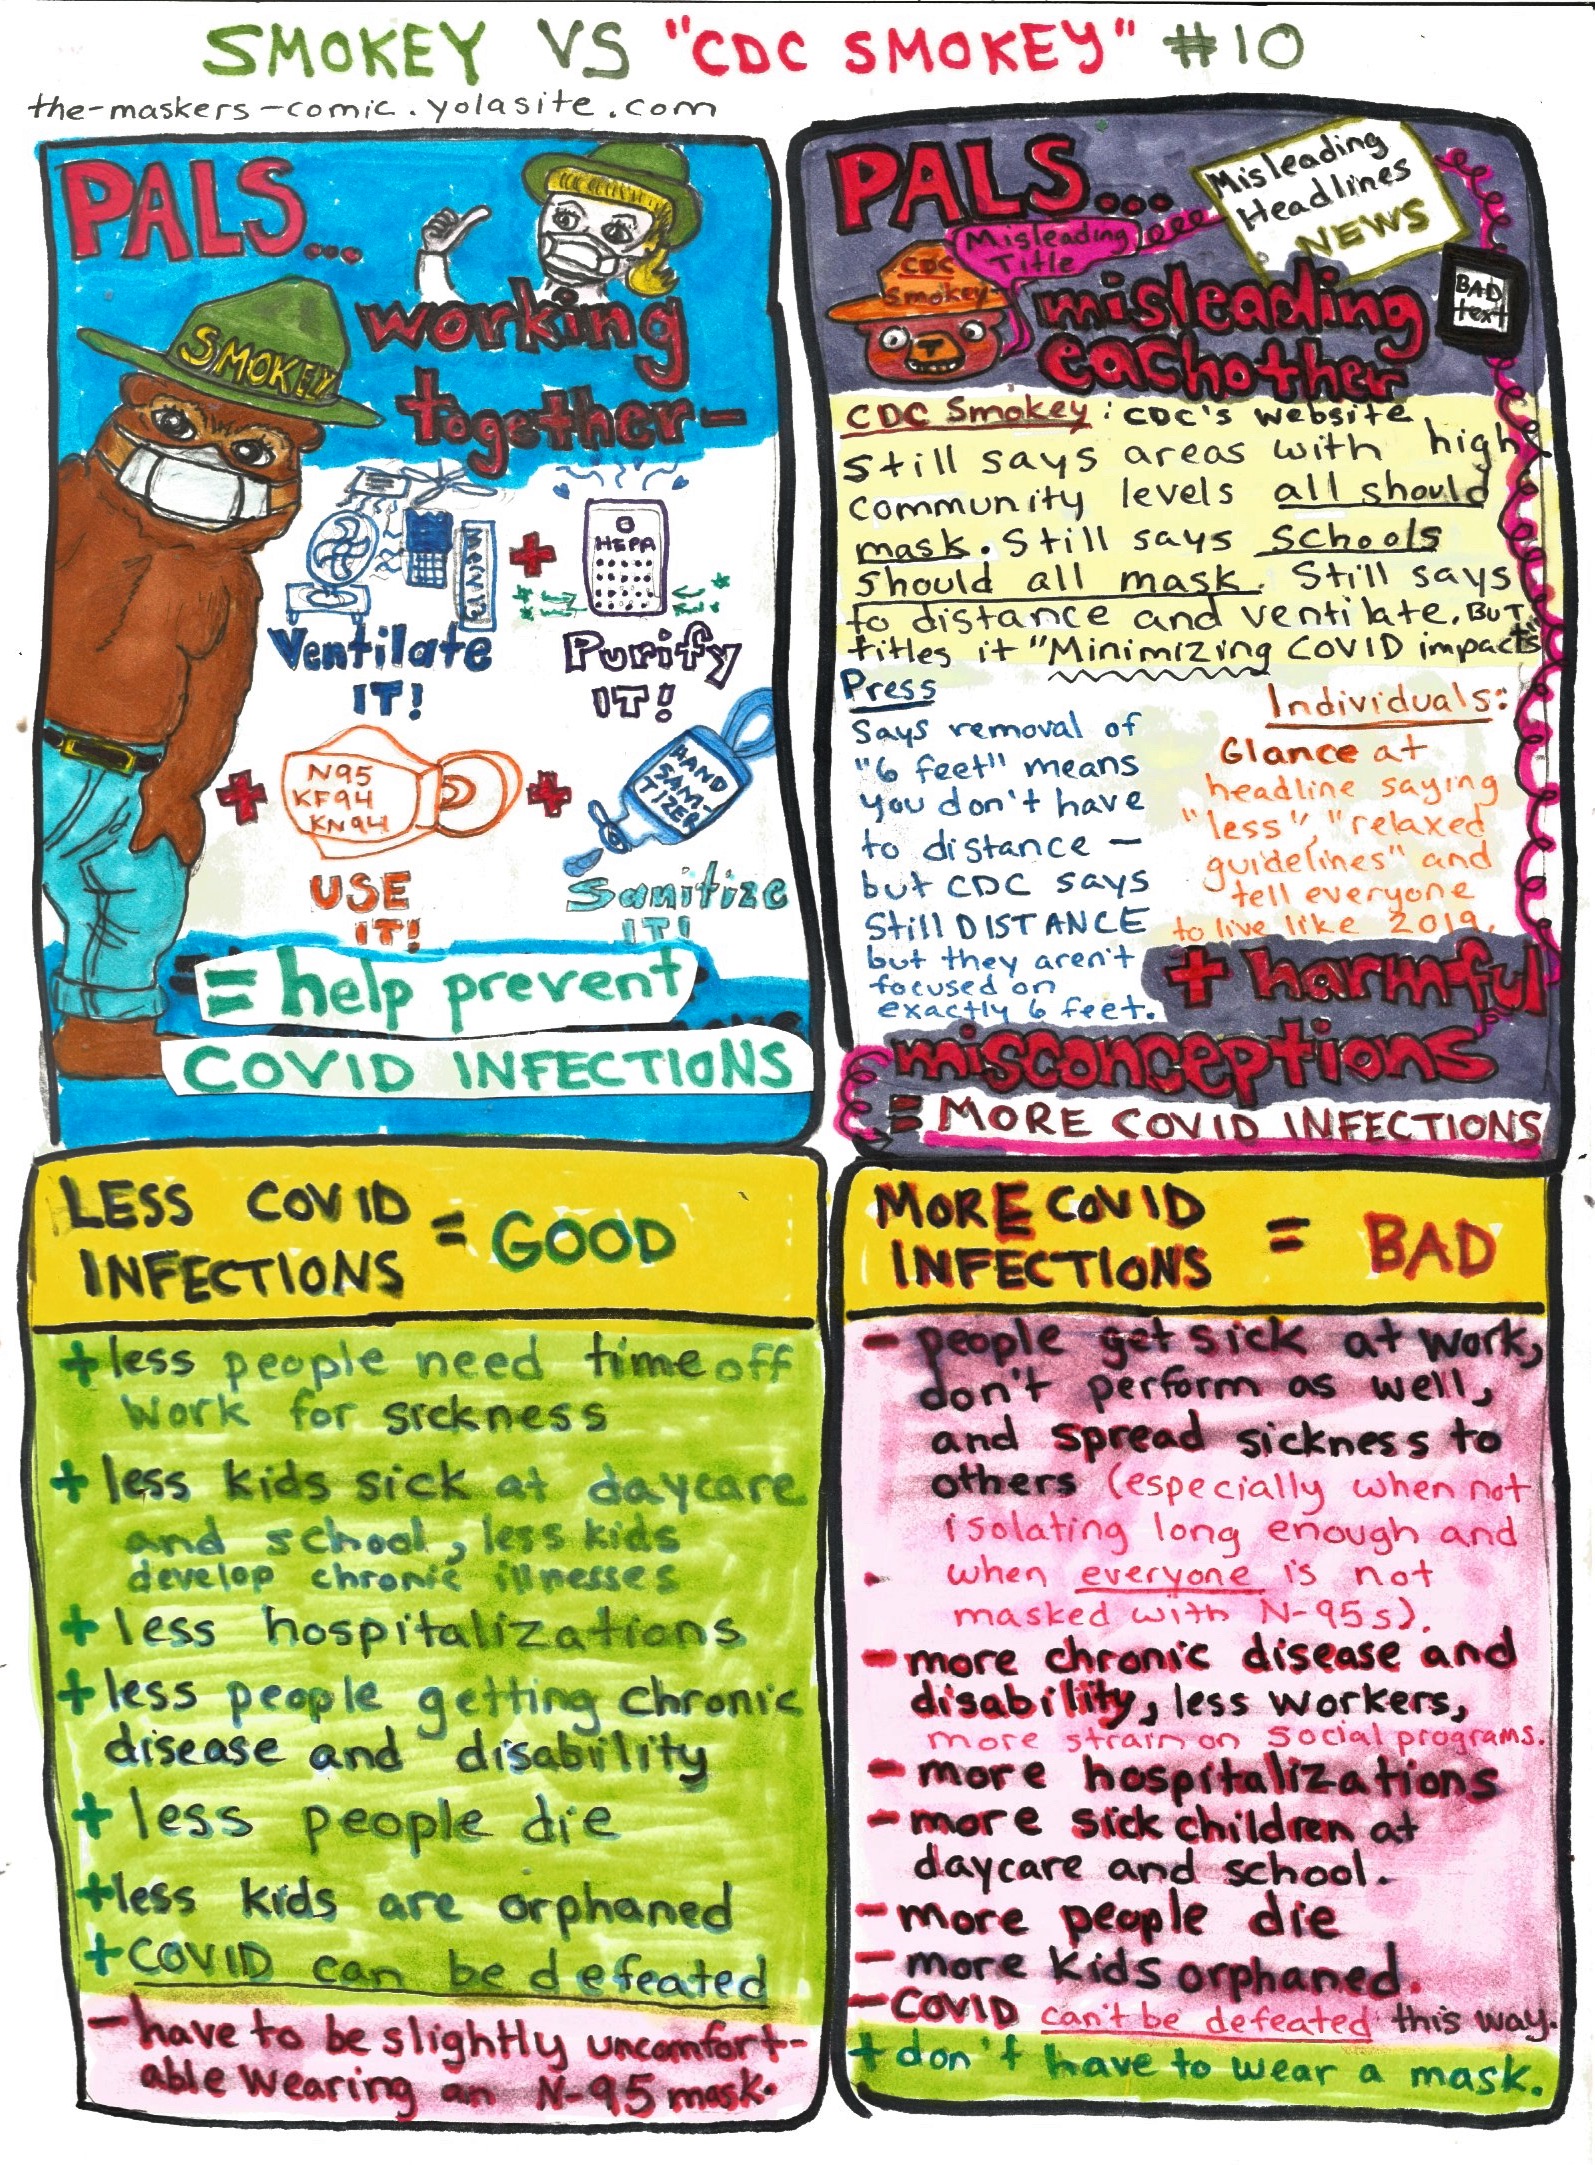 SMOKEY VS "CDC SMOKEY" #10
the-maskers-comic.yolasite.com
PALS...
working
together-
SMOKEY
Merv13
HEPA
Ventilate
IT!
Purify
IT!
N95
KF94
KN94
HAND
SANI-
TIZER
USE
IT!
Sanitize
IT!
= help prevent
COVID INFECTIONS
PALS...
Misleading
Headlines
NEWS
Misleading
Title
CDC
Smokey
BAD
text
misleading
eachother
CDC Smokey: CDC's website
still says areas with high
community levels all should
mask. Still says schools
should all mask. Still says
to distance and ventilate. BUT
titles it "Minimizing COVID impacts"
Press
Says removal of
"6 feet" means
you don't have
to distance –
but CDC says
Still DISTANCE
but they aren't
focused on
exactly 6 feet.
Individuals:
Glance at
headline saying
"less", "relaxed
guidelines" and
tell everyone
to live like 2019.
+ harmful
misconceptions
= MORE COVID INFECTIONS
LESS COVID
INFECTIONS = GOOD
+ less people need time off
work for sickness
+ less kids sick at daycare
and school, less kids
develop chronic illnesses
+ less hospitalizations
+ less people getting chronic
disease and disability
+ less people die
+ less kids are orphaned
+ COVID can be defeated
- have to be slightly uncomfort-
able wearing an N-95 mask.
MORE COVID
INFECTIONS = BAD
- people get sick at work,
don't perform as well,
and spread sickness to
others (especially when not
isolating long enough and
when everyone is not
masked with N-95s).
- more chronic disease and
disability, less workers,
more strain on social programs.
- more hospitalizations
- more sick children at
daycare and school.
- more people die
- more kids orphaned.
- COVID can't be defeated this way.
+ don't have to wear a mask.